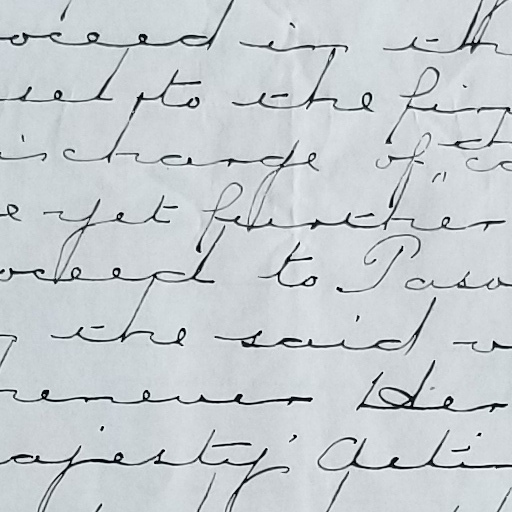 oceed in th
sel to the fir
ischarge of co
e yet further
oceed to Paso
the said v
henever Her
ajesty' Actin